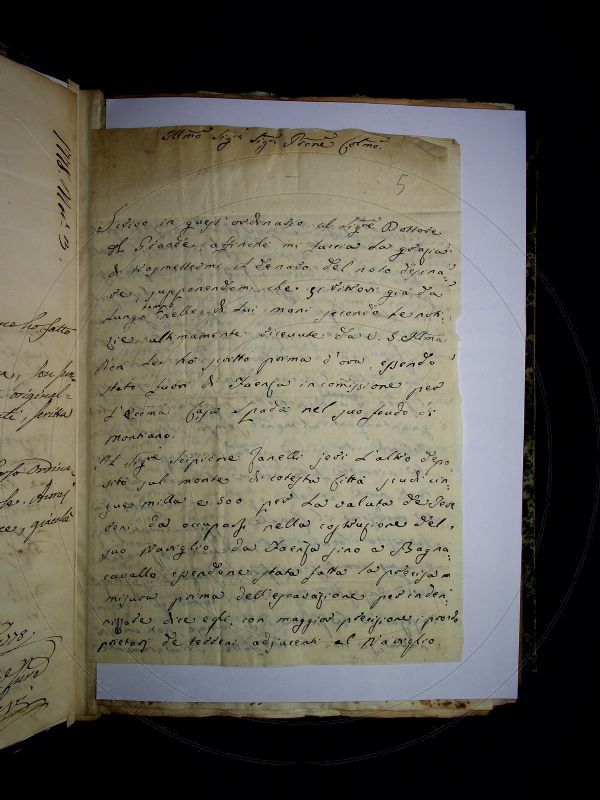 Illmo Sigre Sigre Prne Colmo
5
Scrivo in quest'ordinario al Sigre Dottore
Grande, affinchè mi faccia la grazia
di trasmettermi il denaro del noto
re, supponendomi che si ritrovi già da
lungo tempo nelle di lui mani secondo le noti-
zie ultimamente ricevute da V. S. Illma
Non le ho scritto prima d'ora, essendo
stato fuori di Faenza in comissione per
l'Eccma Casa Spada nel suo feudo di
Montiano.
Il Sigre Scipione Zanelli jeri l'altro depo-
sitò sul monte di cotesta Città scudi cin-
que milla e 500 per la valuta de Ter-
reni da occuparsi nella costruzione del
suo Naviglio da Faenza sino a Bagna-
cavallo essendone stata fatta la precisa
misura prima dell'escavazione per inden-
nizzare, dice egli, con maggior precisione i pro-
prietarj de terreni adjacenti al Naviglio,
1778
ho fatto
original-
scritta